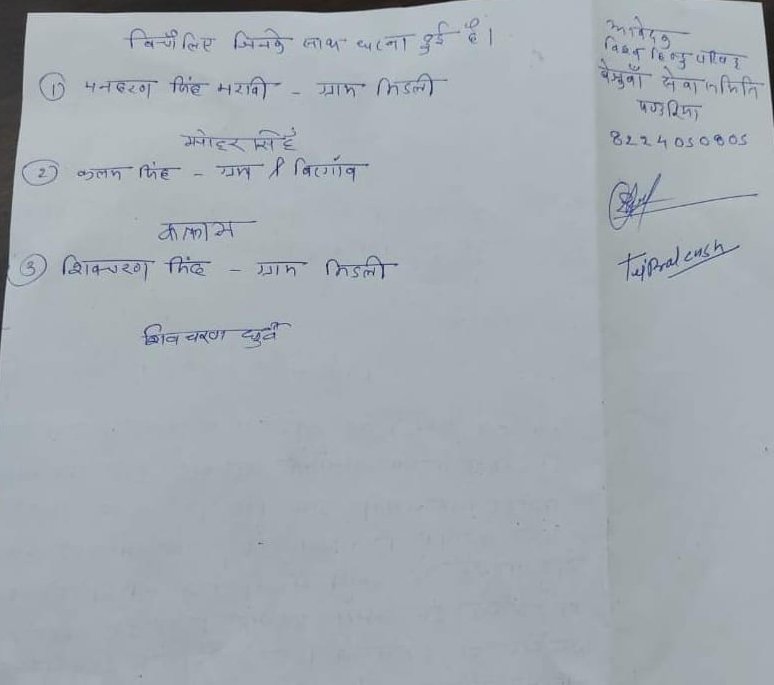 बिचौलिए जिनके साथ घटना हुई है।
① मनहरण सिंह मरावी - ग्राम भिडली
मनोहर सिंह
② कलम सिंह - ग्राम
③ शिवचरण सिंह - ग्राम भिडली
शिव चरण धुर्वे
आवेदक
विश्व हिन्दु परिषद
सेवा समिति
पण्डरिया
8224050805
Tejprakash